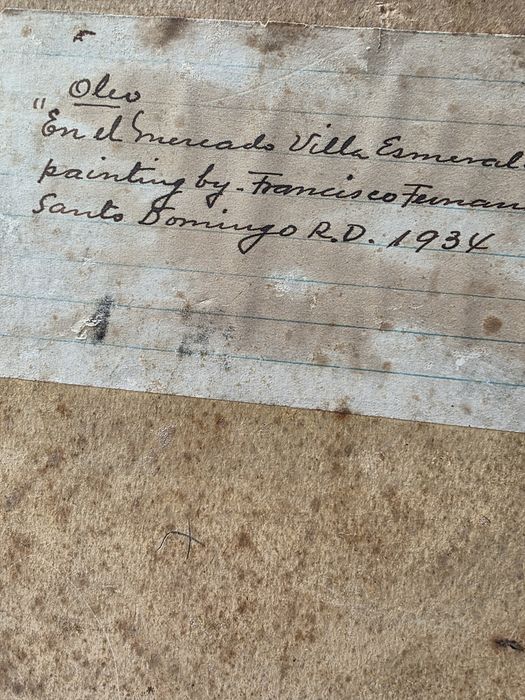 Oleo
"En el Mercado Villa Esmeral
painting by - Francisco Fernan
Santo Domingo R.D. 1934